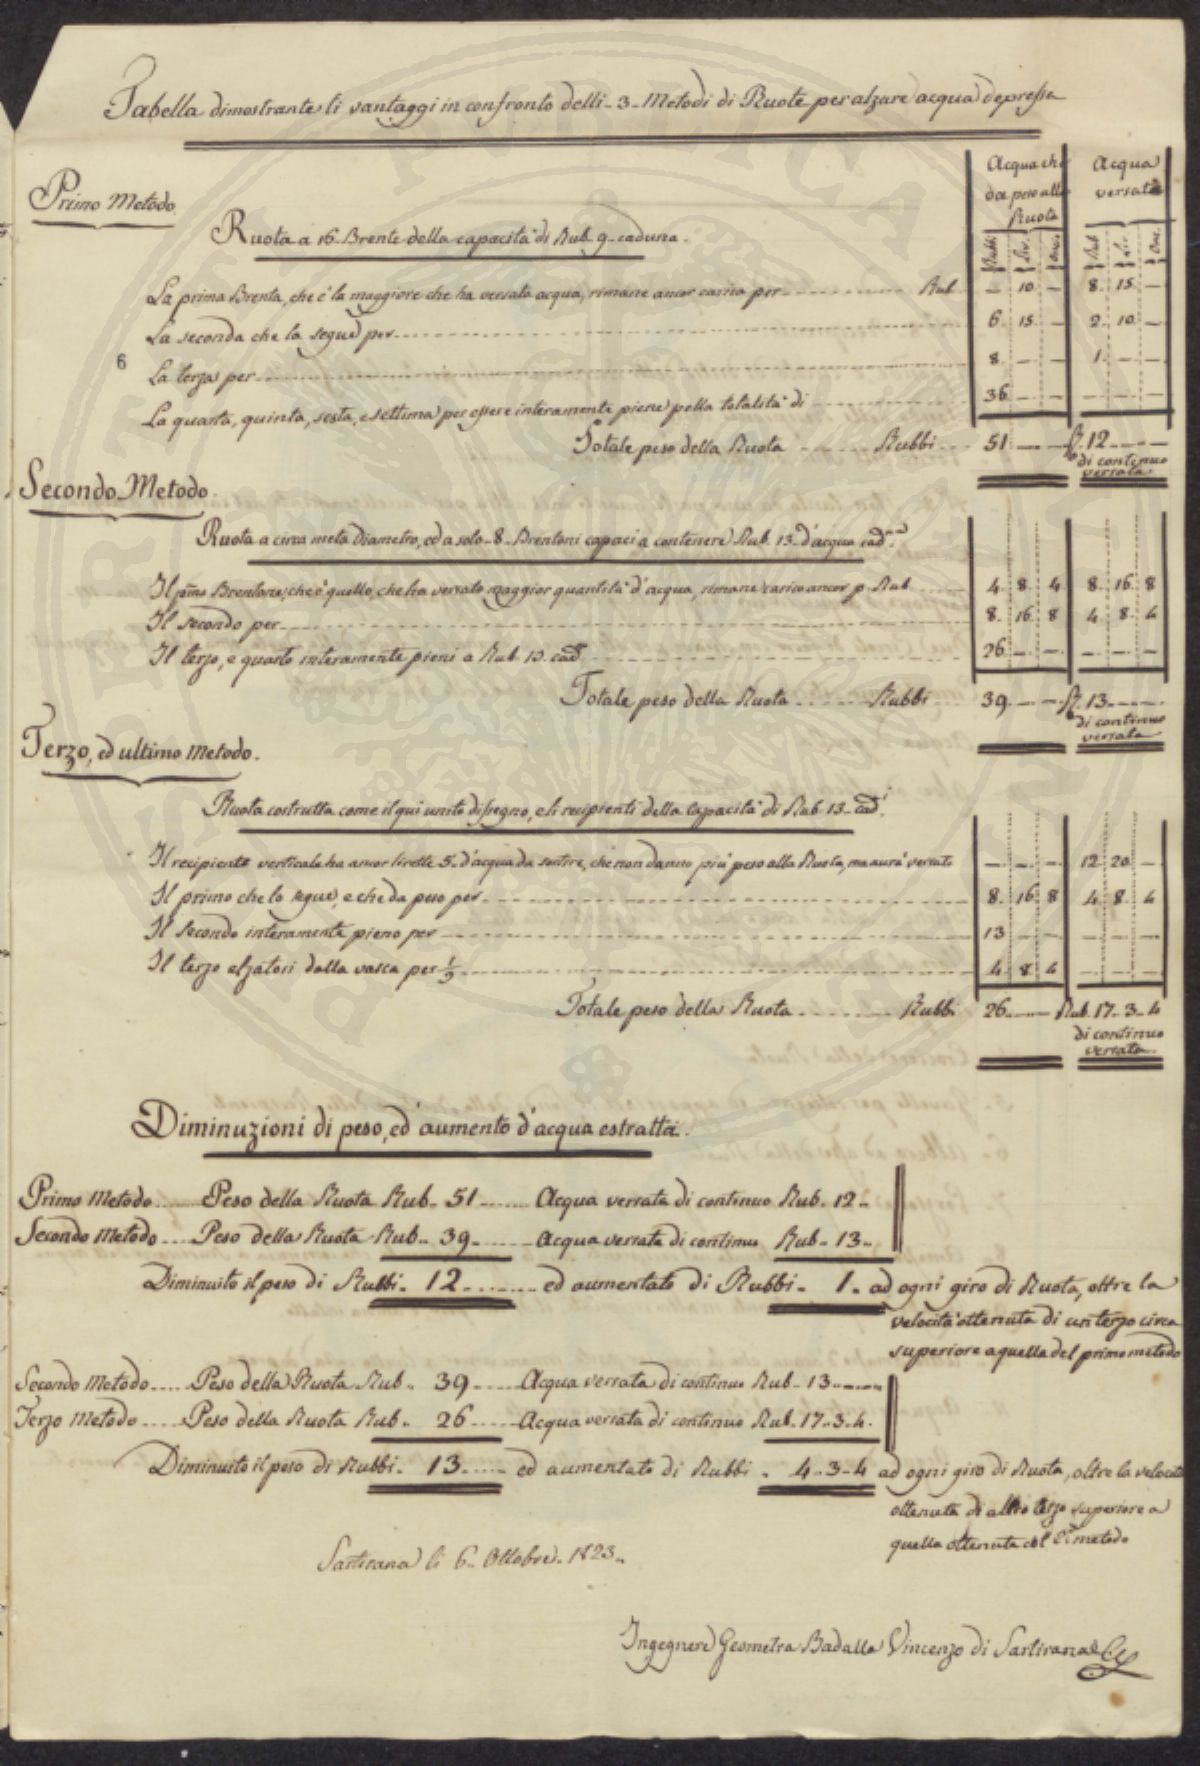 Tabella dimostrante li vantaggi in confronto delli - 3 - Metodi di Ruote per alzare acqua depressa
Acqua che da peso alla Ruota
Acqua versata
Rubbi Lir. Onc. Rub Lir. Onc.
Primo Metodo
Ruota a 16 Brente della capacità di Rub. 9 caduna.
La prima Brenta, che è la maggiore che ha versato acqua, rimane ancor carica per Rub — 10 — 8. 15. —
La seconda che la segue per 6 15 — 2. 10 —
6
La terza per 8 — — 1. — —
La quarta, quinta, sesta, e settima per essere interamente piene pella totalità di 36 — — — — —
Totale peso della Ruota Rubbi 51 — — R. 12 — —
di continuo versata
Secondo Metodo.
Ruota a circa metà Diametro, ed a solo - 8 - Brentoni capaci a contenere Rub. 13 d'acqua cad.no
Il p̃mo Brentone, che è quello, che ha versato maggior quantità d'acqua, rimane carico ancor p. Rub 4 8 4 8. 16 8
Il secondo per 8. 16 8 4 8 4
Il terzo, e quarto interamente pieni a Rub. 13. cad. 26 — — — — —
Totale peso della Ruota Rubbi 39 — — R. 13 — —
di continuo versata
Terzo, ed ultimo Metodo.
Ruota costrutta come il qui unito disegno, e li recipienti della cappacità di Rub. 13 cad.i
Il recipiente verticale ha ancor lirette 5. d'acqua da sortire, che non danno più peso alla Ruota, ma aurà versato — — — 12 20 —
Il primo che lo segue, e che da peso per 8. 16 8 4 8 4
Il secondo interamente pieno per 13 — — — — —
Il terzo alzatosi dalla vasca per 1/3 4 8 4 — — —
Totale peso della Ruota Rubbi 26 — — Rub. 17 - 3 - 4
di continuo versata
Diminuzioni di peso, ed aumento d'acqua estratta.
Primo Metodo Peso della Ruota Rub. 51 Acqua versata di continuo Rub. 12 -
Secondo Metodo Peso della Ruota Rub. 39 Acqua versata di continuo Rub. 13 -
Diminuito il peso di Rubbi. 12 ed aumentato di Rubbi. 1. ad ogni giro di Ruota, oltre la
velocità ottenuta di un terzo circa
superiore a quella del primo metodo
Secondo Metodo Peso della Ruota Rub. 39 Acqua versata di continuo Rub. 13
Terzo Metodo Peso della Ruota Rub. 26 Acqua versata di continuo Rub. 17 - 3 - 4.
Diminuito il peso di Rubbi. 13 ed aumentato di Rubbi. 4 - 3 - 4 ad ogni giro di Ruota, oltre la velocità
ottenuta di altro terzo superiore a
quella ottenuta col 2.° metodo
Sartirana li 6. Ottobre. 1823.
Ingegnere Geometra Badalla Vincenzo di Sartirana